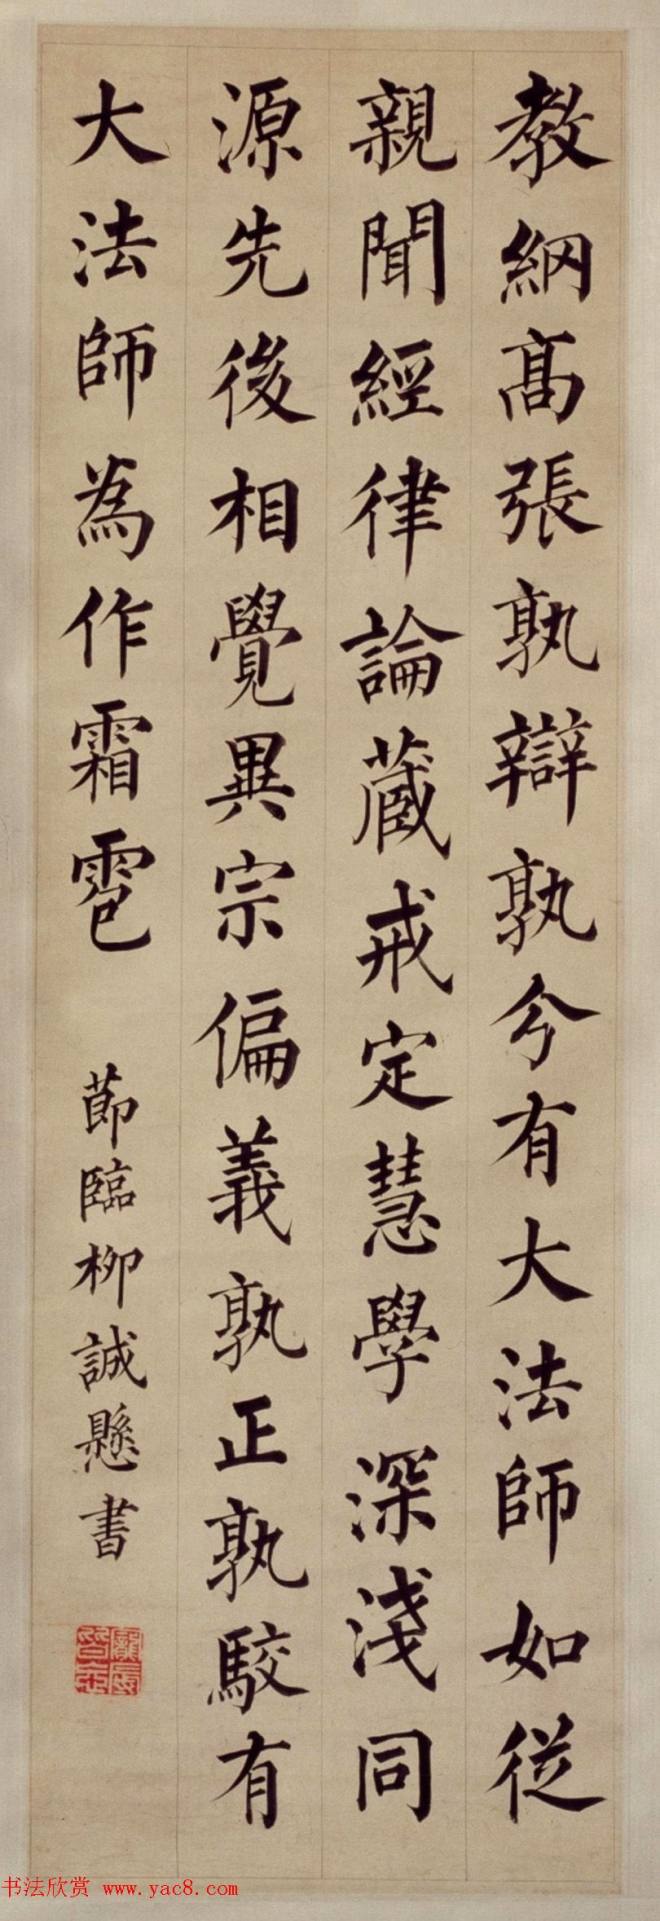 教綱髙張孰辯孰今有大法師如從
親聞經律論藏戒定慧學深淺同
源先後相覺異宗偏義孰正孰駮有
大法師為作霜雹
節臨柳誠懸書
书法欣赏 www.yac8.com